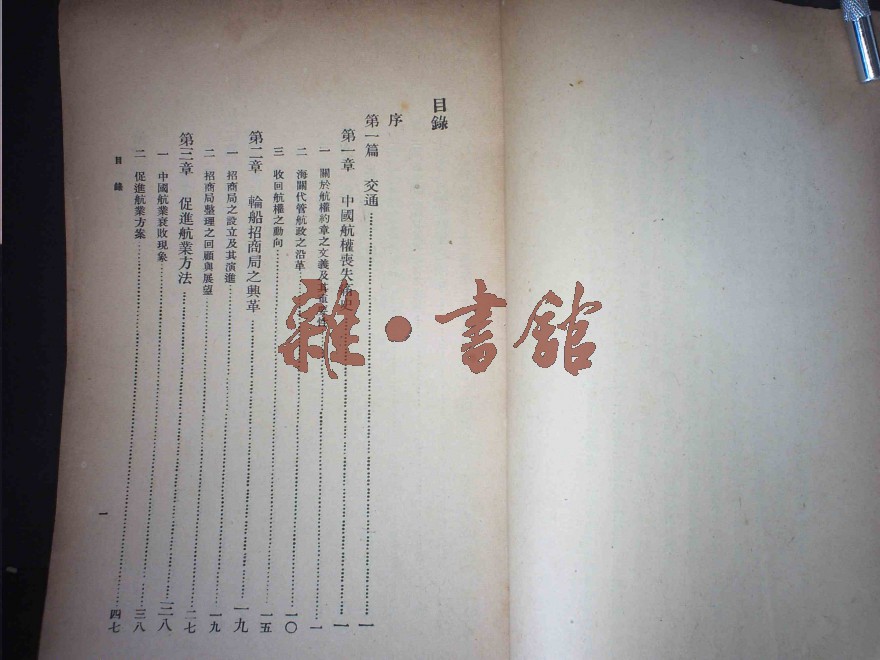 目錄
序
第一篇 交通……一
第一章 中國航權喪失……一
一 關於航權約章之文義及其……一
二 海關代管航政之沿革……一〇
三 收回航權之動向……一五
第二章 輪船招商局之興革……一九
一 招商局之設立及其演進……一九
二 招商局整理之回顧與展望……二七
第三章 促進航業方法……三八
一 中國航業衰敗現象……三八
二 促進航業方案……四七
目錄
一
雜·書館